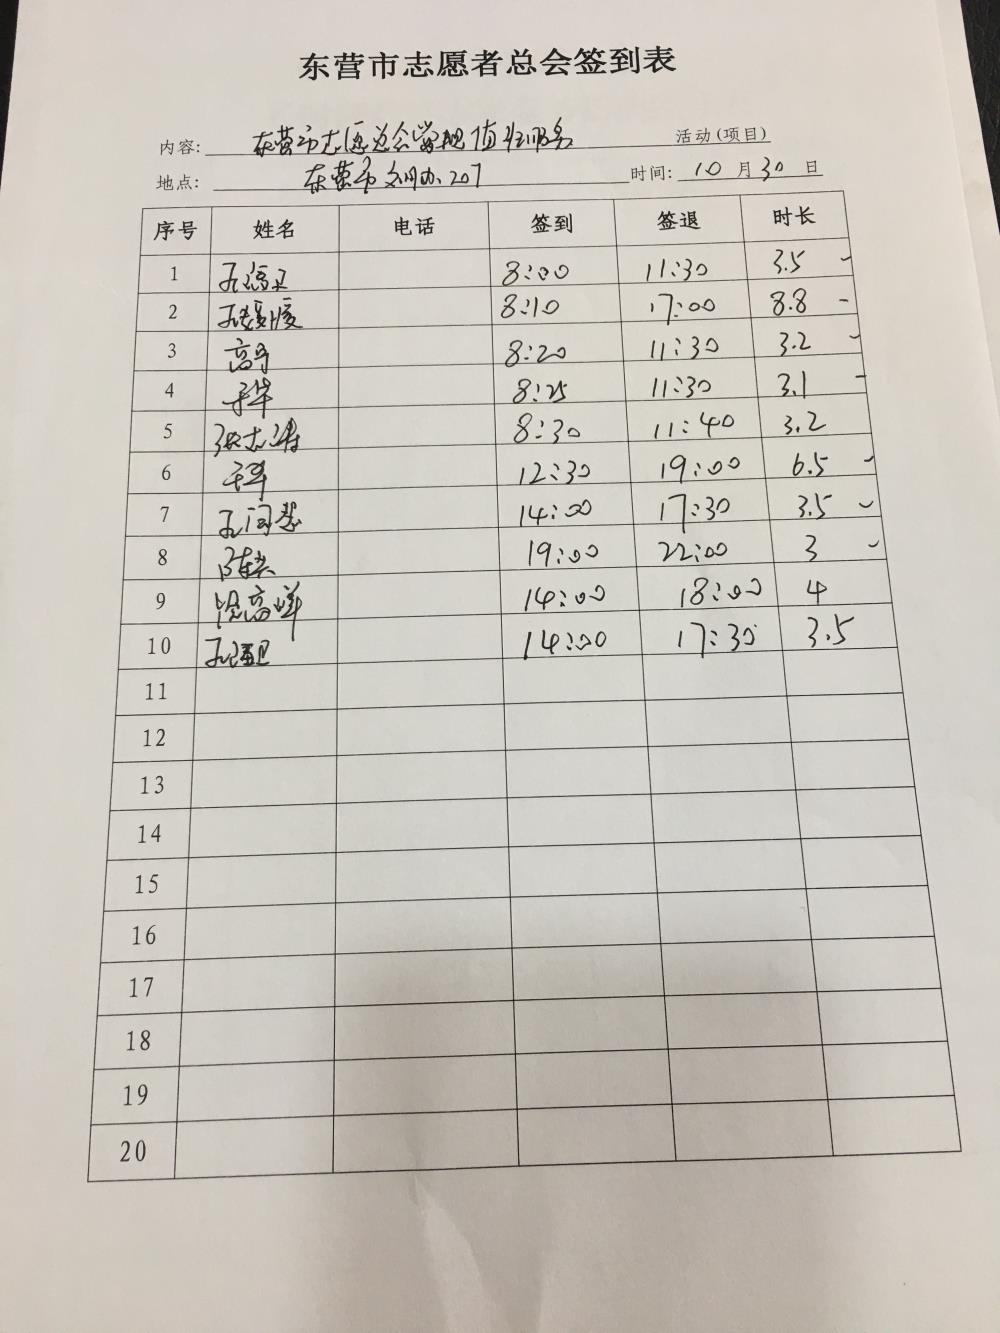 东营市志愿者总会签到表
内容: 东营市志愿总会常规值班服务 活动(项目)
地点: 东营市文明办207 时间: 10月30日
序号 姓名 电话 签到 签退 时长
1 8:00 11:30 3.5
2 8:10 17:00 8.8
3 高 8:20 11:30 3.2
4 8:25 11:30 3.1
5 张志涛 8:30 11:40 3.2
6 12:30 19:00 6.5
7 14:00 17:30 3.5
8 19:00 22:00 3
9 高峰 14:00 18:00 4
10 14:00 17:30 3.5
11
12
13
14
15
16
17
18
19
20